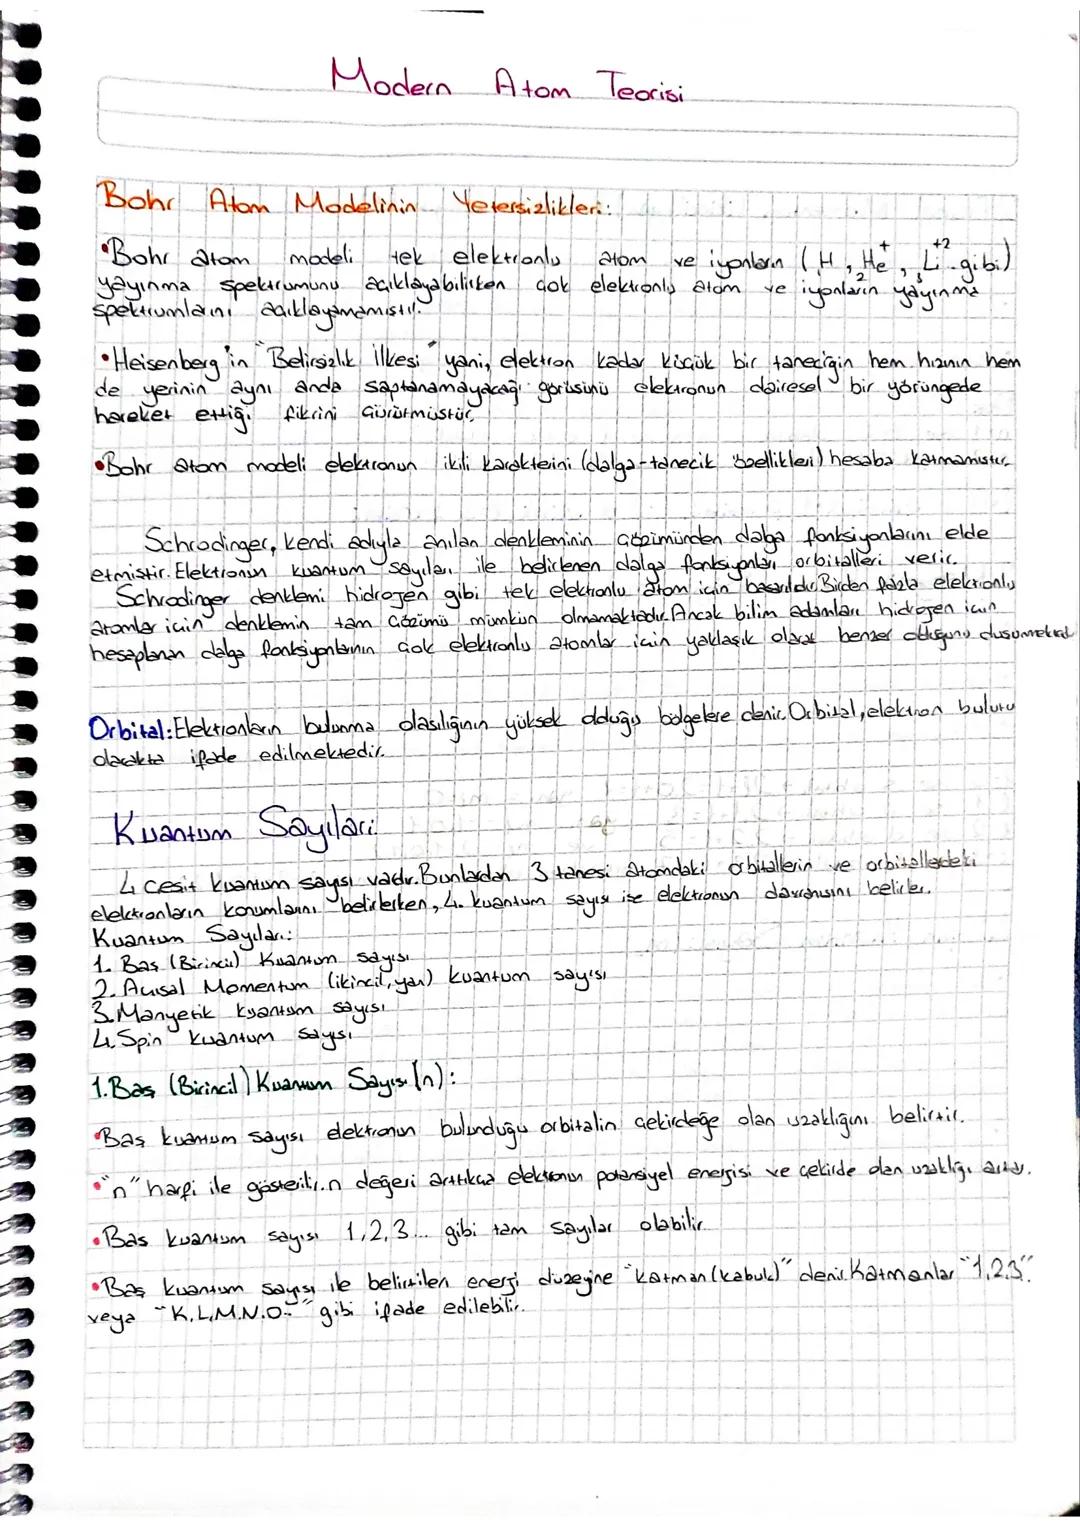 Modern Atom Teorisi
Bohr Atom Modelinin Yetersizlikleri:
•Bohr atom modeli tek elektronlu atom ve iyonların (H, ₂He⁺, ₃Li⁺² gibi)
yayınma spektrumunu açıklayabilirken çok elektronlu atom ve iyonların yayınma
spektrumlarını açıklayamamıştır.
•Heisenberg'in "Belirsizlik İlkesi" yani, elektron kadar küçük bir taneciğin hem hızının hem
de yerinin aynı anda saptanamayacağı görüşünü elektronun dairesel bir yörüngede
hareket ettiği fikrini çürütmüştür.
•Bohr atom modeli elektronun ikili karakterini (dalga-tanecik özellikleri) hesaba katmamıştır.
Schrodinger, kendi adıyla anılan denkleminin çözümünden dalga fonksiyonlarını elde
etmiştir. Elektronun kuantum sayıları ile belirlenen dalga fonksiyonları orbitalleri verir.
Schrodinger denklemi hidrojen gibi tek elektronlu atom için başarılıdır. Birden fazla elektronlu
atomlar için denklemin tam çözümü mümkün olmamaktadır. Ancak bilim adamları hidrojen için
hesaplanan dalga fonksiyonlarının çok elektronlu atomlar için yaklaşık olarak benzer olduğunu düşünmektedir
Orbital: Elektronların bulunma olasılığının yüksek olduğu bölgelere denir. Orbital, elektron bulutu
olarakta ifade edilmektedir.
Kuantum Sayıları
4 çeşit kuantum sayısı vardır. Bunlardan 3 tanesi atomdaki orbitallerin ve orbitallerdeki
elektronların konumlarını belirlerken, 4. kuantum sayısı ise elektronun davranışını belirler.
Kuantum Sayıları:
1. Baş (Birincil) Kuantum sayısı
2. Açısal Momentum (ikincil, yan) kuantum sayısı
3. Manyetik kuantum sayısı
4. Spin kuantum sayısı
1. Baş (Birincil) Kuantum Sayısı (n):
•Baş kuantum sayısı elektronun bulunduğu orbitalin çekirdeğe olan uzaklığını belirtir.
•"n" harfi ile gösterilir. n değeri arttıkça elektronun potansiyel enerjisi ve çekirde olan uzaklığı artar.
•Baş kuantum sayısı 1,2,3... gibi tam sayılar olabilir.
•Baş kuantum sayısı ile belirtilen enerji düzeyine "katman (kabuk)" denir. Katmanlar "1,2,3"
veya "K,L,M,N,O.." gibi ifade edilebilir.